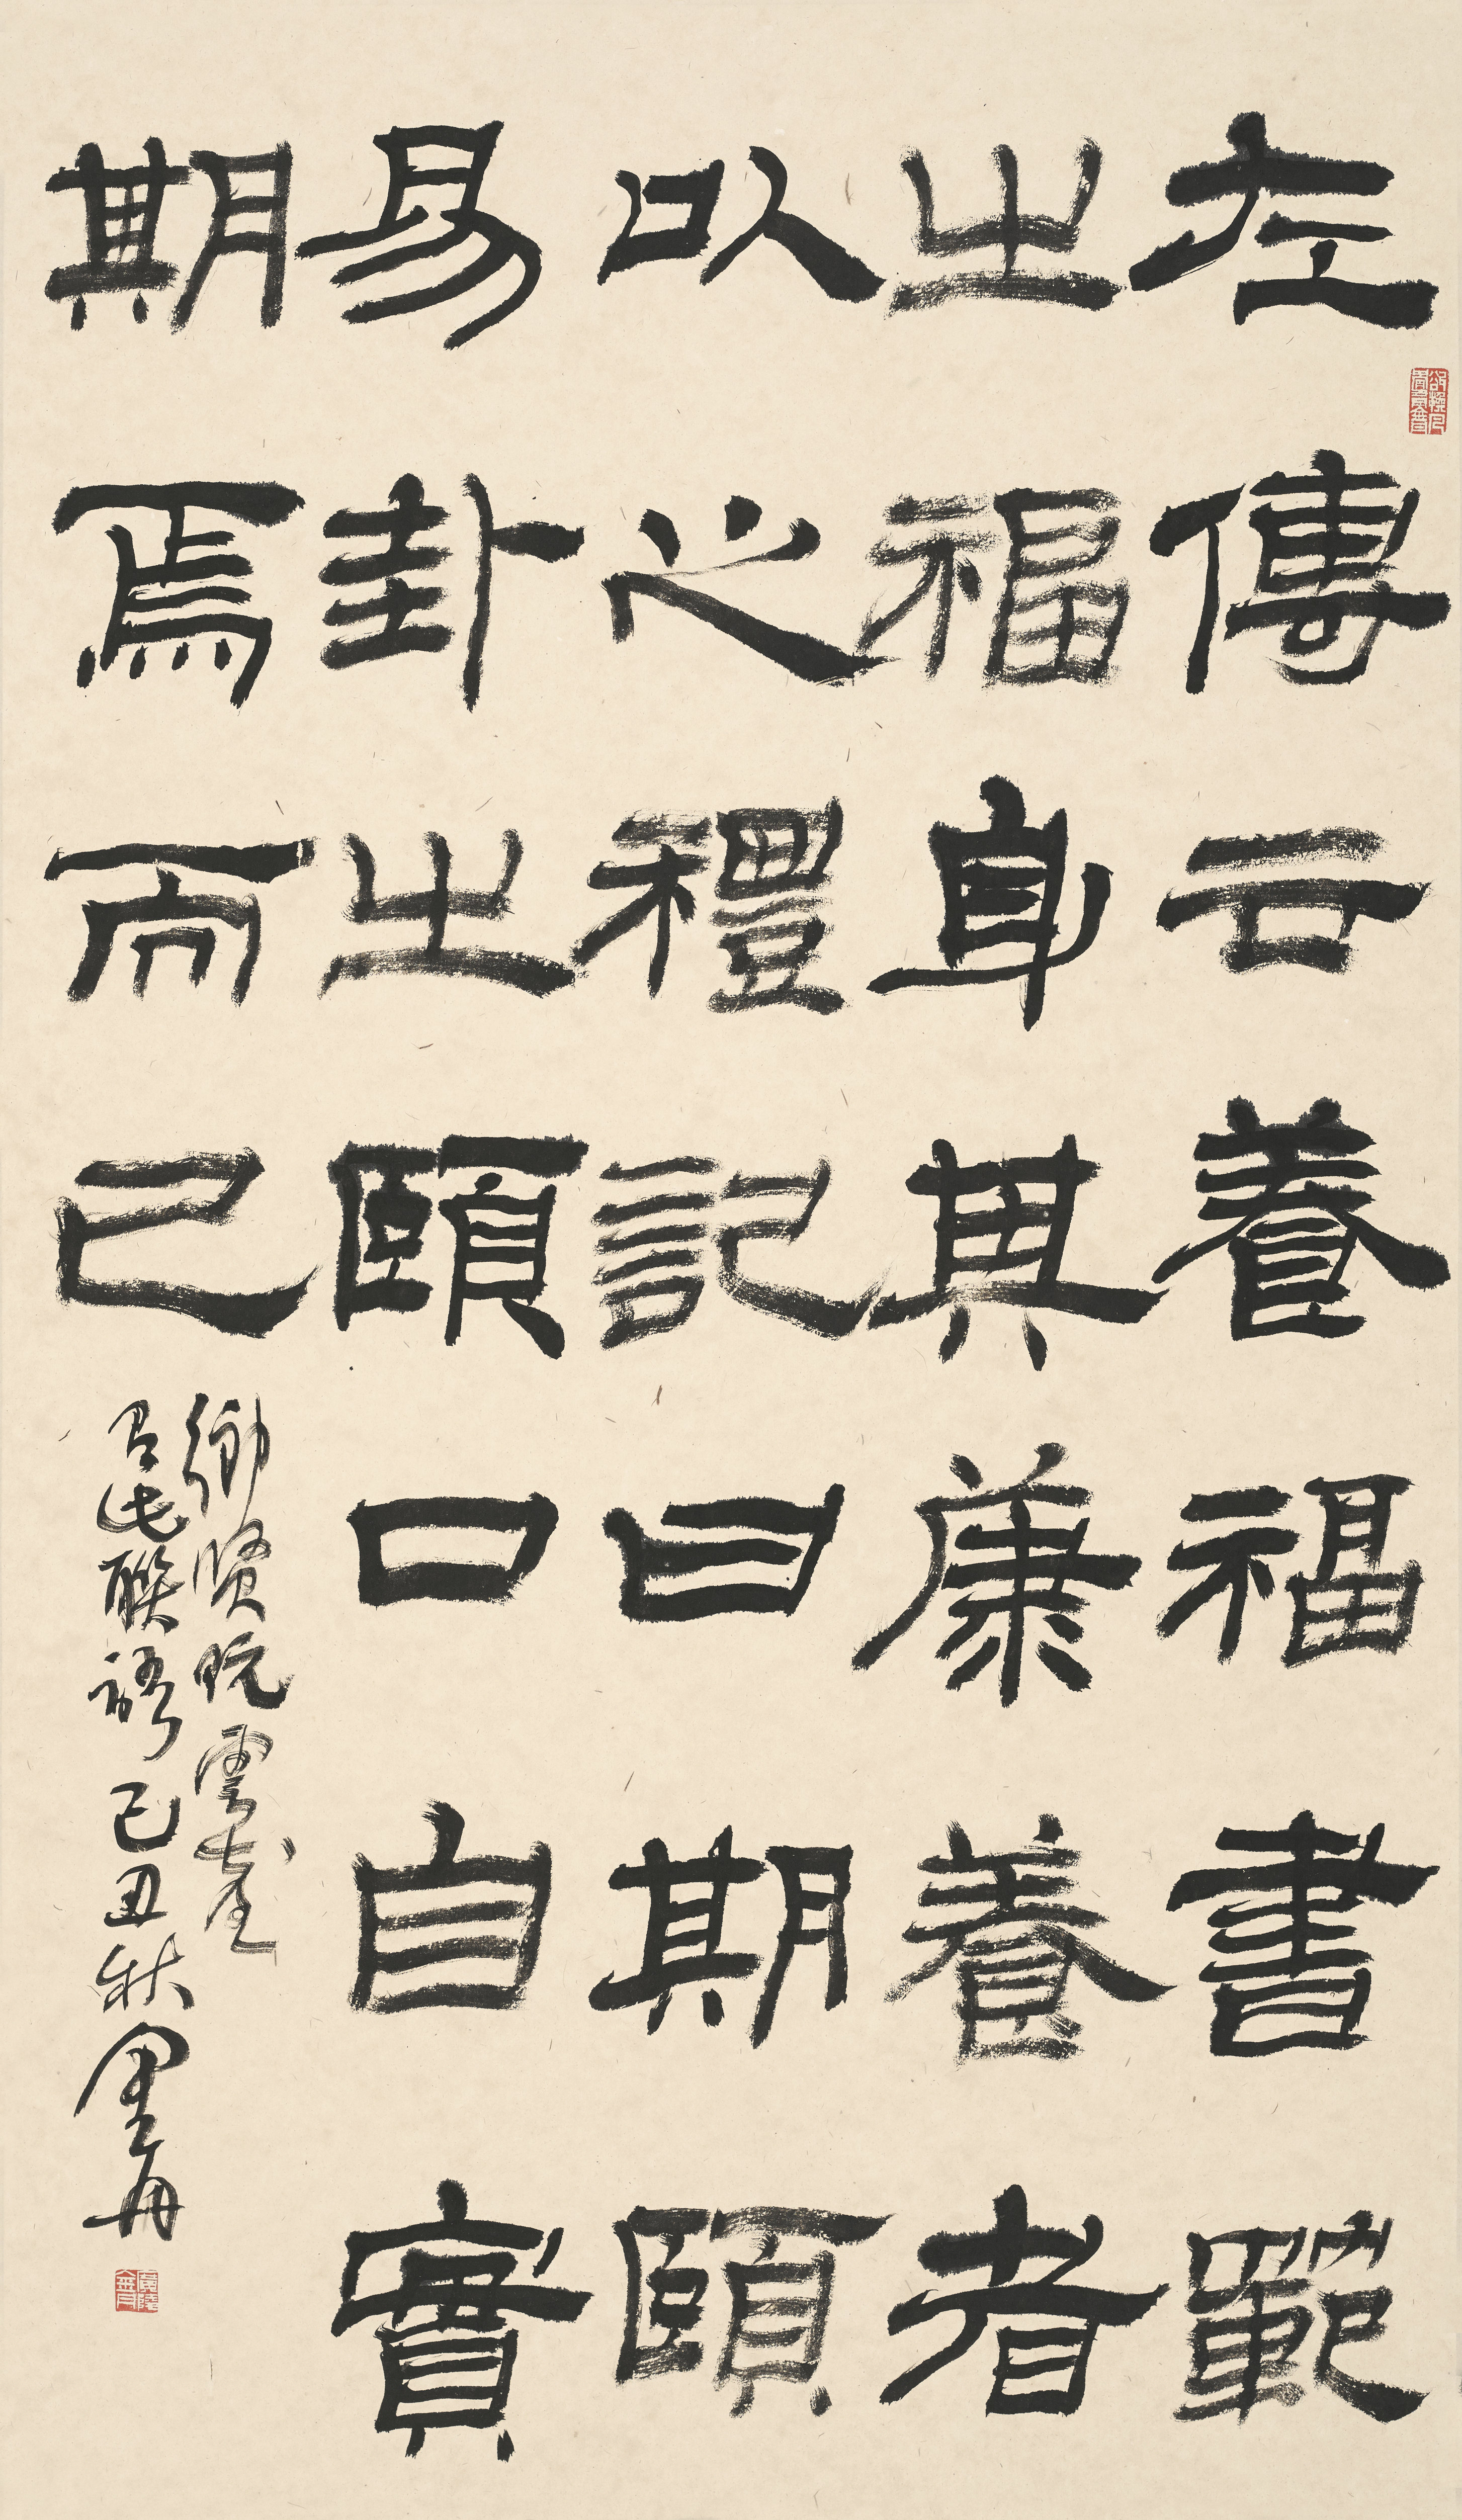 左傳云養福書範
之福身其康養者
以之禮記曰期頤
易卦之頤口自實
期焉而已
鄉賢阮雲臺
此聯語己丑秋